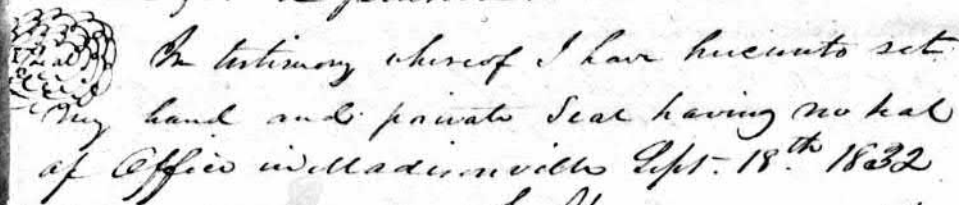 Seal
In testimony whereof I have hereunto set
my hand and private Seal having no seal
of Office in Madisonville Sept. 18th 1832